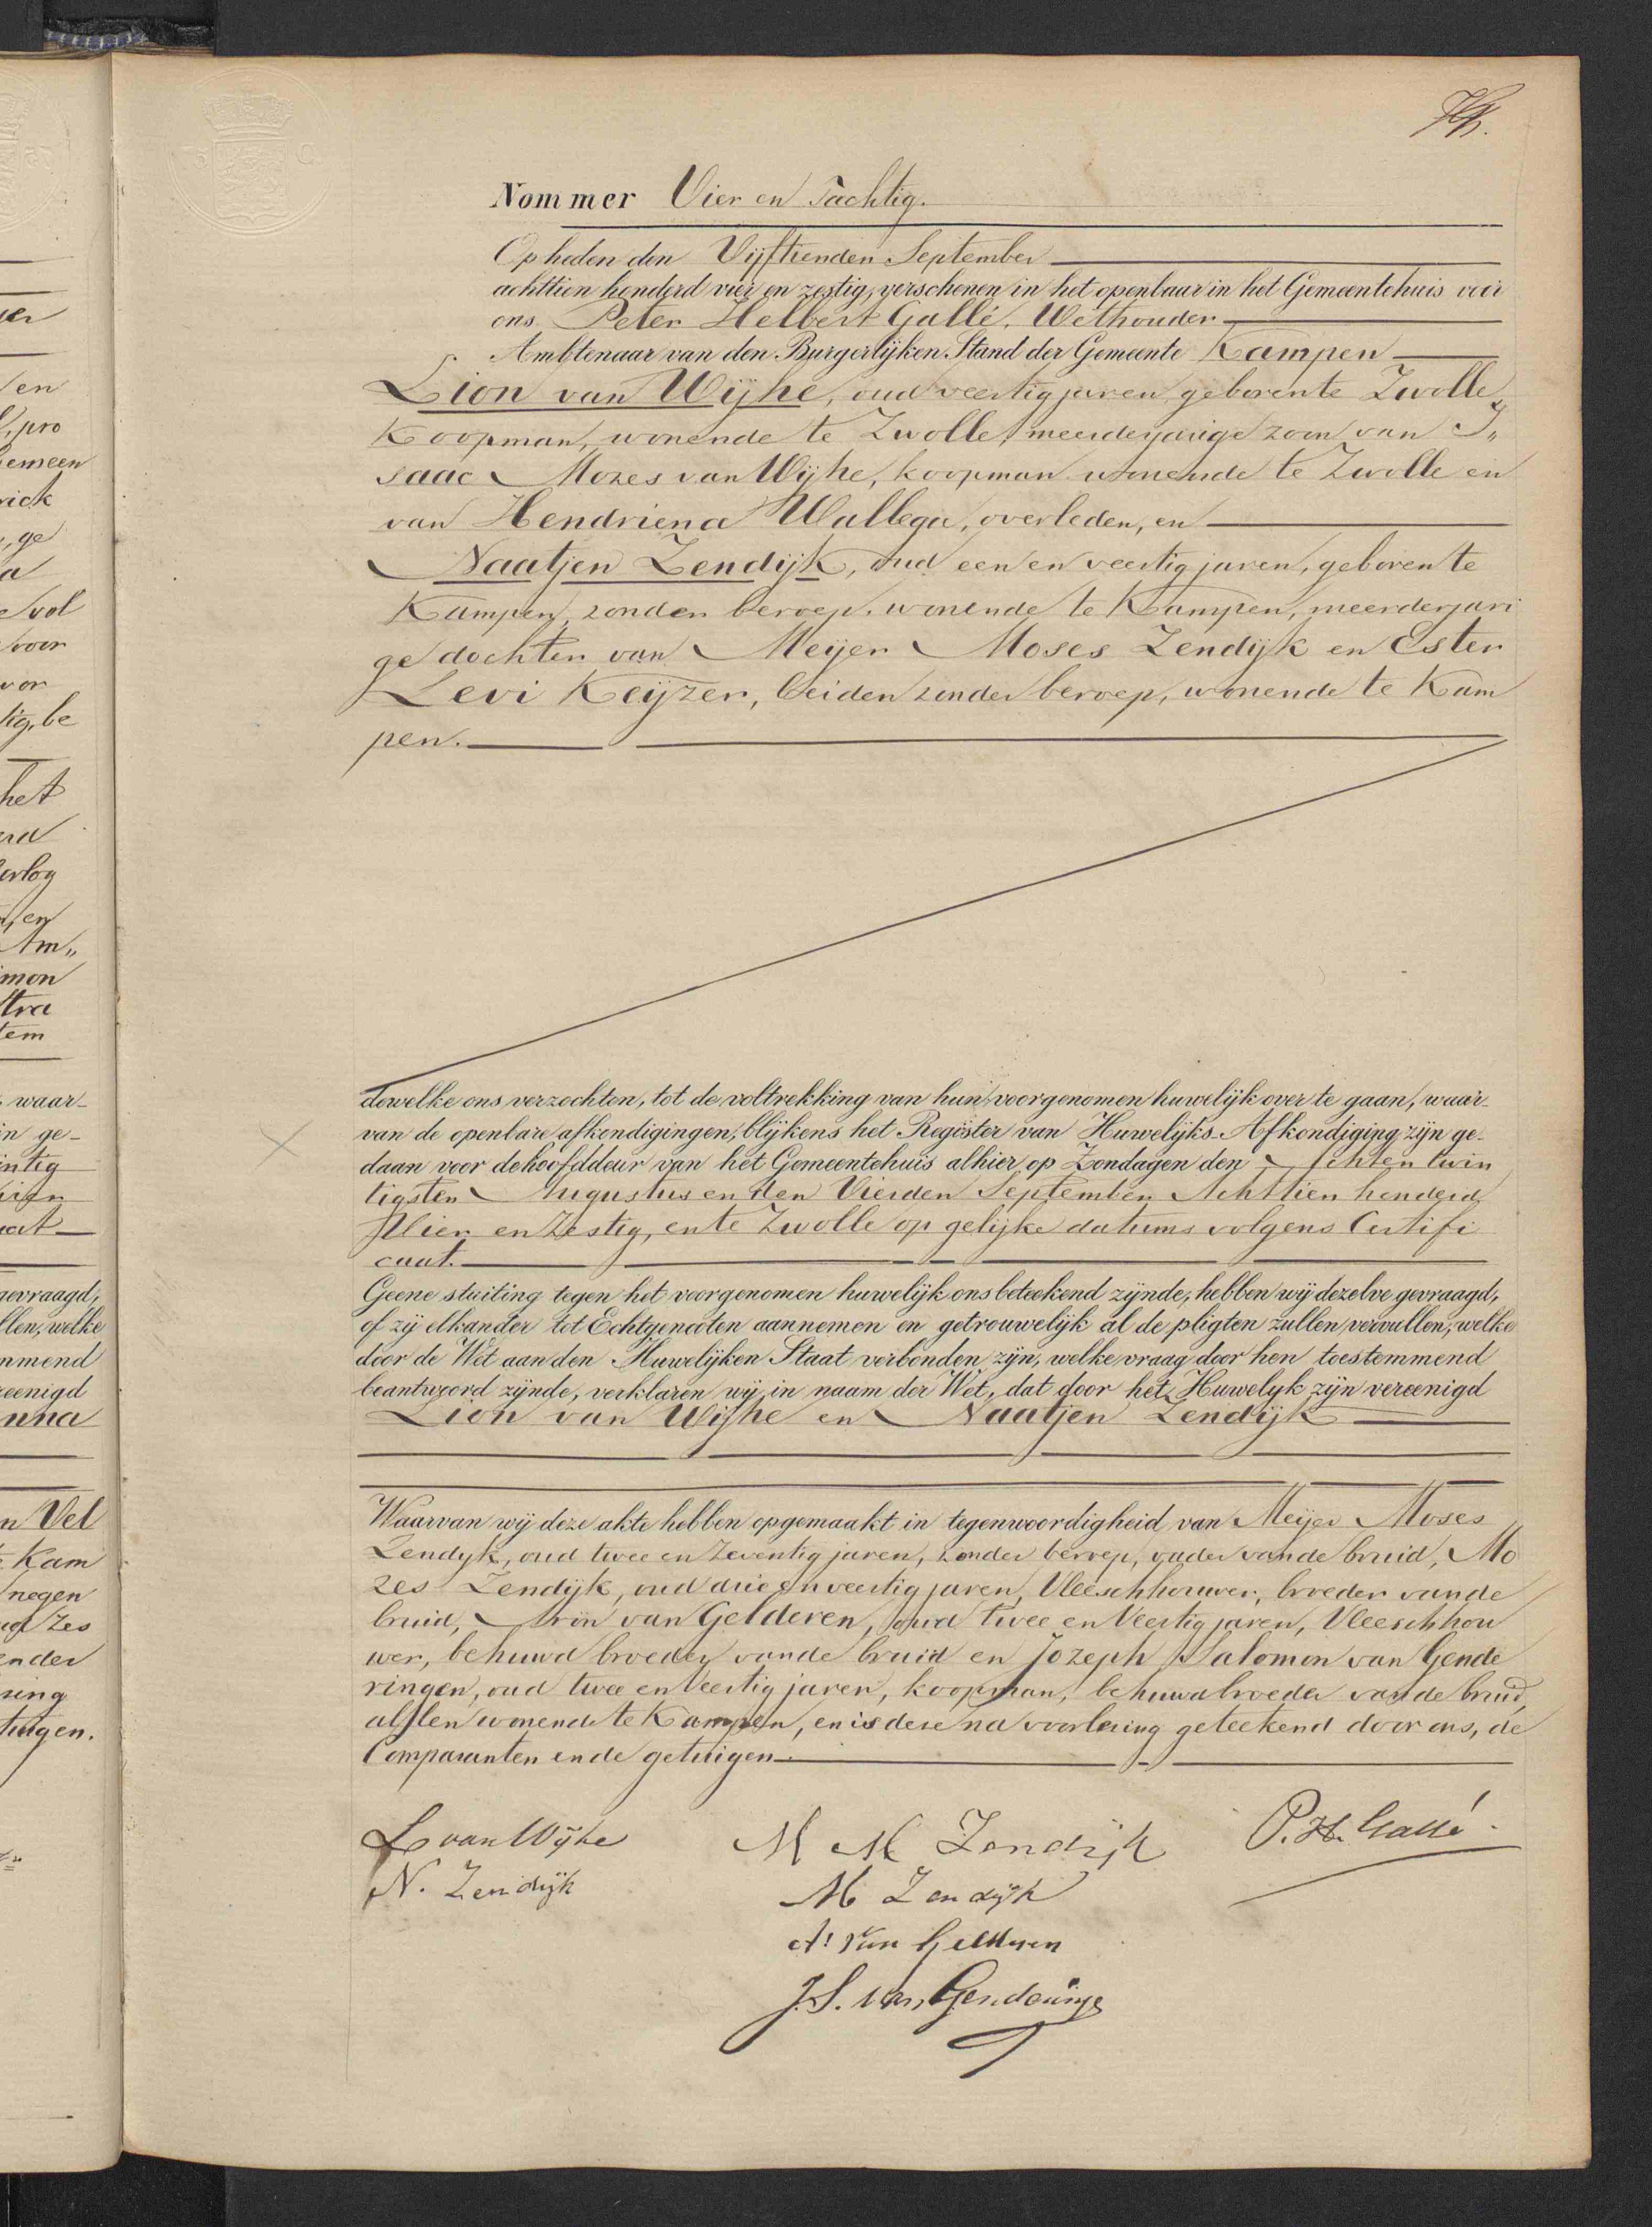 Nommer Vier en Tachtig.
Op heden den Vijftienden September
achttien honderd vier en zestig, verschenen in het openbaar in het Gemeentehuis voor
ons Peter Helbert Gallé, Wethouder
Ambtenaar van den Burgerlijken Stand der Gemeente Kampen
Lion van Wijhe, oud veertig jaren, geboren te Zwolle,
Koopman, wonende te Zwolle, meerderjarige zoon van I„
saac Mozes van Wijhe, koopman wonende te Zwolle en
van Hendriena Wallega, overleden, en
Naatjen Zendijk, oud een en veertig jaren, geboren te
Kampen, zonder beroep, wonende te Kampen, meerderjari
ge dochter van Meijer Moses Zendijk en Ester
Levi Keijzer, beiden zonder beroep, wonende te Kam
pen.
dewelke ons verzochten, tot de voltrekking van hun voorgenomen huwelijk over te gaan, waar-
van de openbare afkondigingen, blijkens het Register van Huwelijks-Afkondiging zijn ge-
daan voor de hoofddeur van het Gemeentehuis alhier op Zondagen den Achten twin
tigsten Augustus en den Vierden September Achttien honderd
Vier en Zestig, en te Zwolle op gelijke datums volgens Certifi
caat.
Geene stuiting tegen het voorgenomen huwelijk ons beteekend zijnde, hebben wij dezelve gevraagd,
of zij elkander tot Echtgenooten aannemen en getrouwelijk al de pligten zullen vervullen, welke
door de Wet aan den Huwelijken Staat verbonden zijn, welke vraag door hen toestemmend
beantwoord zijnde, verklaren wij in naam der Wet, dat door het Huwelyk zijn vereenigd
Lion van Wijhe en Naatjen Zendijk
Waarvan wij deze akte hebben opgemaakt in tegenwoordigheid van Meijer Moses
Zendyk, oud twee en Zeventig jaren, zonder beroep, vader van de bruid, Mo
zes Zendijk, oud drie en veertig jaren, Vleeschhouwer, broeder van de
bruid, Aron van Gelderen, oud twee en Veertig jaren, Vleeschhou
wer, behuwd broeder van de bruid en Jozeph Salomon van Gende
ringen, oud twee en Veertig jaren, koopman, behuwd broeder van de bruid,
allen wonende te Kampen, en is deze na voorlezing geteekend door ons, de
Comparanten en de getuigen.
L van Wijhe M M Zendijk P. H. Gallé
N. Zendijk M Zendijk
A: van Gelderen
J. S. van Genderinge